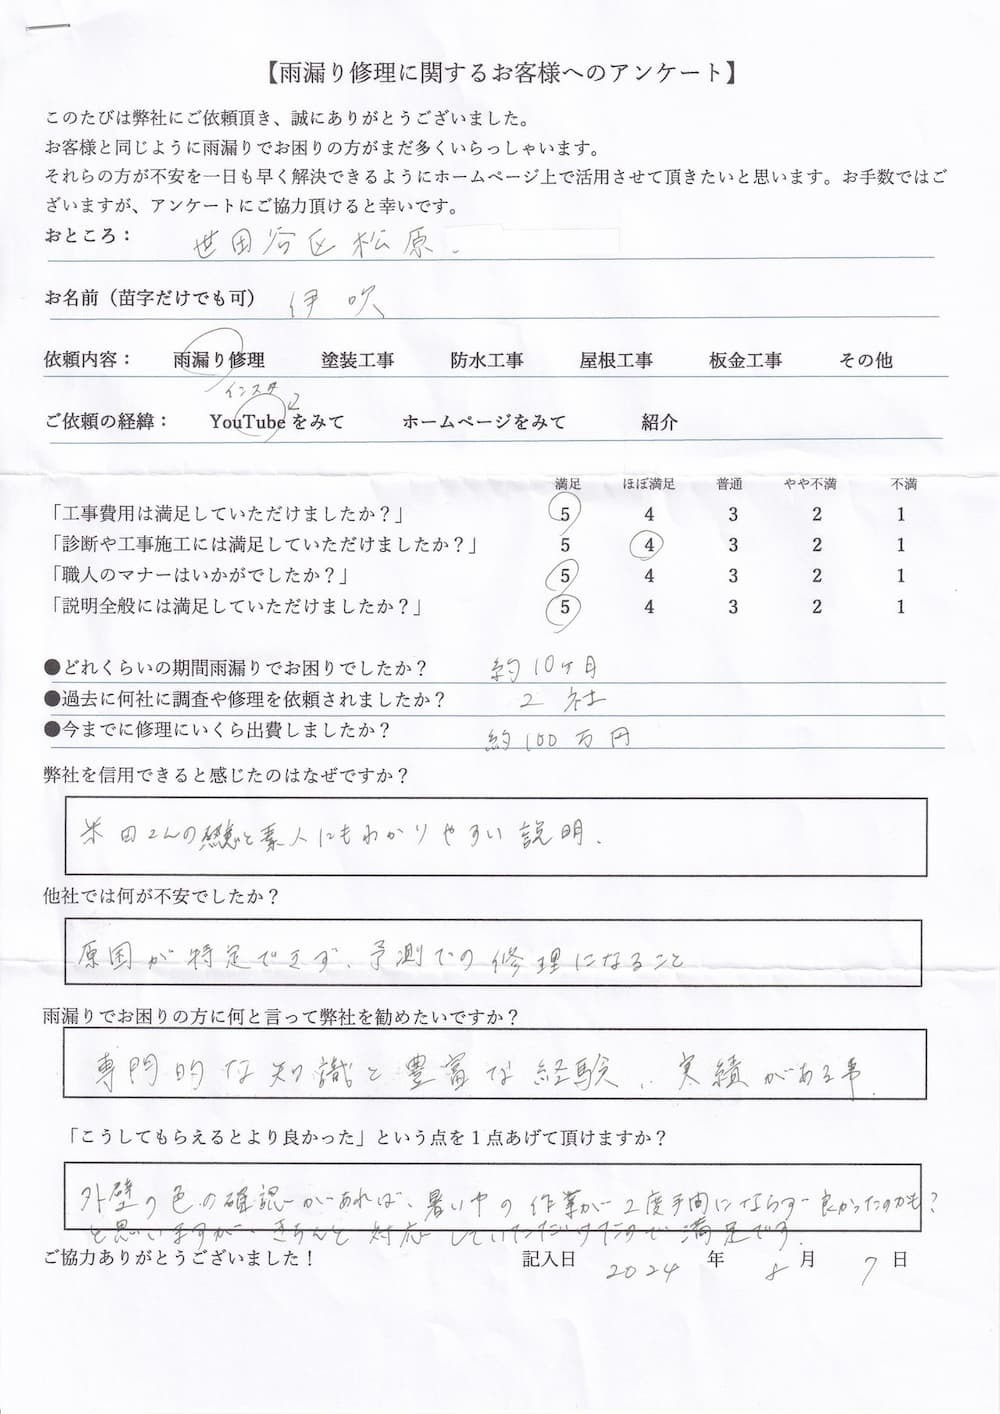 【雨漏り修理に関するお客様へのアンケート】
このたびは弊社にご依頼頂き、誠にありがとうございました。
お客様と同じように雨漏りでお困りの方がまだ多くいらっしゃいます。
それらの方が不安を一日も早く解決できるようにホームページ上で活用させて頂きたいと思います。お手数ではご
ざいますが、アンケートにご協力頂けると幸いです。
おところ： 世田谷区松原.
お名前（苗字だけでも可） 伊吹
依頼内容： 雨漏り修理 塗装工事 防水工事 屋根工事 板金工事 その他
インスタ
ご依頼の経緯： YouTube をみて ホームページをみて 紹介
満足 ほぼ満足 普通 やや不満 不満
「工事費用は満足していただけましたか？」 5 4 3 2 1
「診断や工事施工には満足していただけましたか？」 5 4 3 2 1
「職人のマナーはいかがでしたか？」 5 4 3 2 1
「説明全般には満足していただけましたか？」 5 4 3 2 1
●どれくらいの期間雨漏りでお困りでしたか？ 約10ヶ月
●過去に何社に調査や修理を依頼されましたか？ 2社
●今までに修理にいくら出費しましたか？ 約100万円
弊社を信用できると感じたのはなぜですか？
米田さんの と素人にもわかりやすい説明.
他社では何が不安でしたか？
原因が特定できず、予測での修理になること
雨漏りでお困りの方に何と言って弊社を勧めたいですか？
専門的な知識と豊富な経験、実績がある事.
「こうしてもらえるとより良かった」という点を１点あげて頂けますか？
外壁の色の確認があれば、暑い中の作業が2度手間にならず良かったのかも？
と思いますが、きちんと対応していただけたので満足です.
ご協力ありがとうございました！ 記入日 2024 年 8 月 7 日